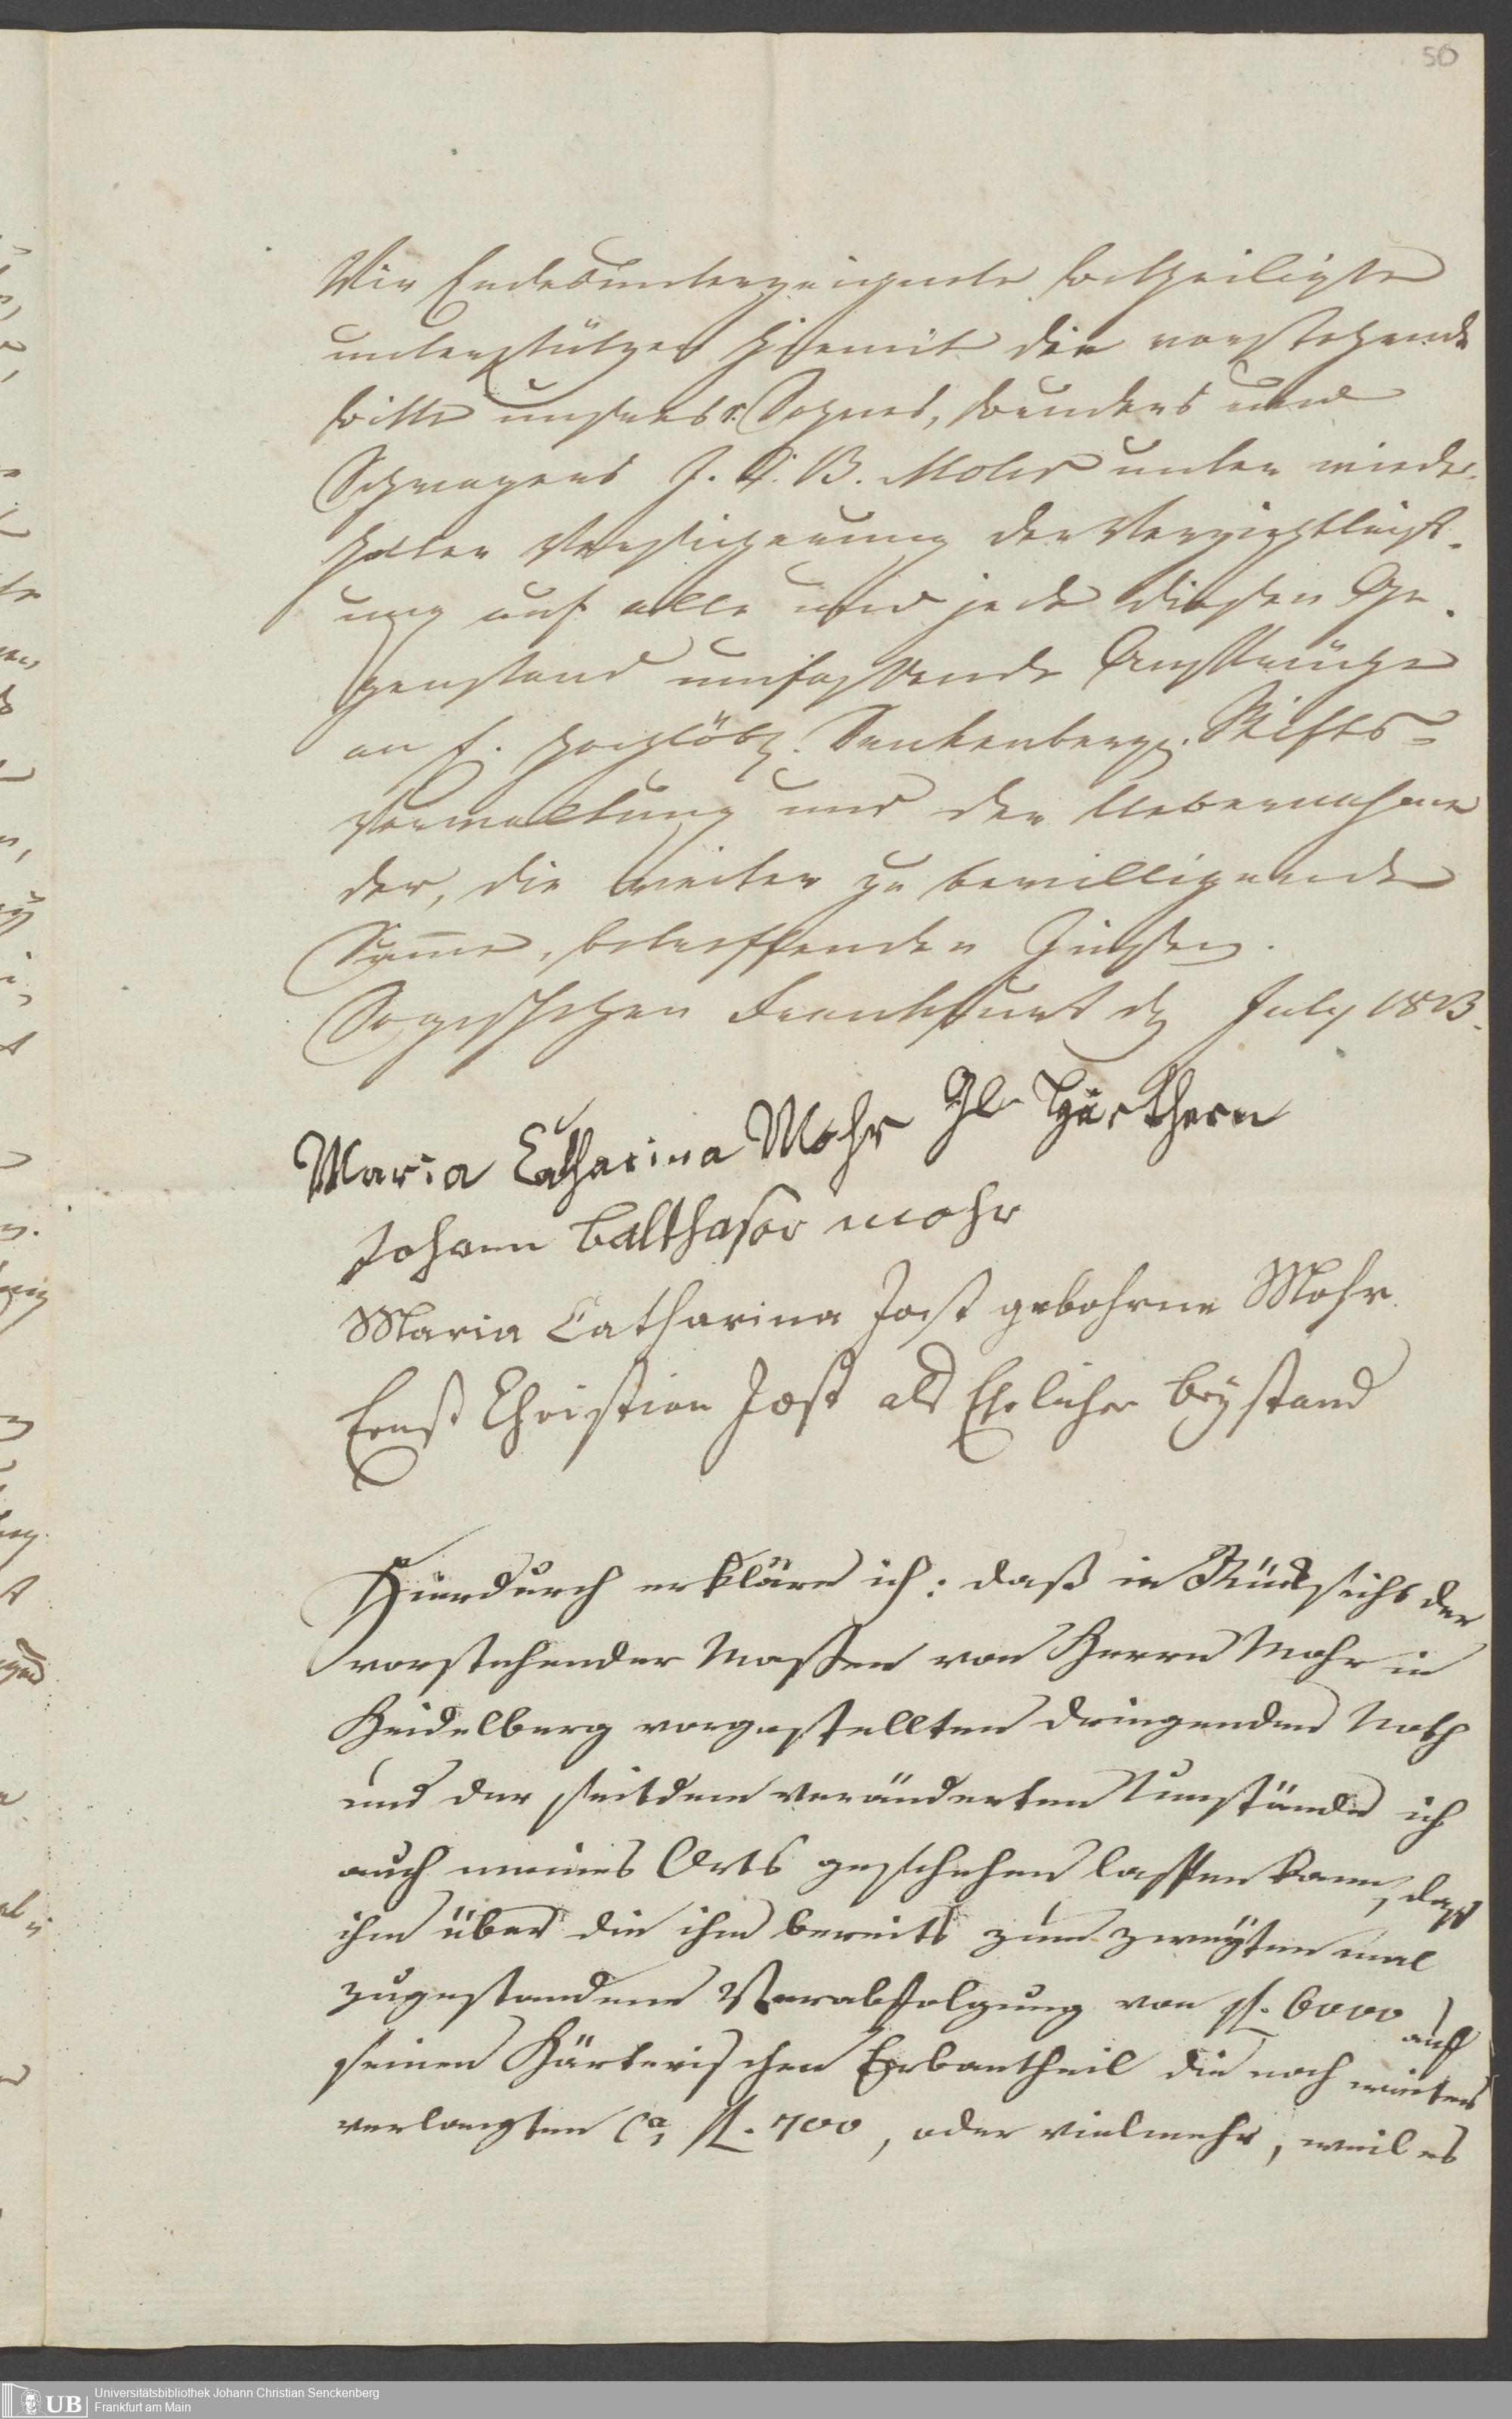 50
Wir Endesunterzeichnete betheiligte
unterstützen hiemit die vorstehende
bitte unseres r. Sohnes, bruders und
Schwagers J. C. B. Mohr unter wieder-
holter Versicherung der Verzichtleist-
ung auf alle und jede diesen Ge-
genstand umfassende Ansprüche
an E. hochlöbl. Senkenberg. Stifts=
Verwaltung und der Uebernahme
der, die weiter zu bewilligende
Summe, betreffenden Zinsen.
So geschehen Frankfurt d July 1813.
Maria Catharina Mohr Gb Härthern
Johann balthasar mohr
Maria Catharina Jost gebohrne Mohr.
Ernst Christian Jost als Ehelicher beystand
Hierdurch erkläre ich: daß in Rücksicht der
vorstehender Massen von Herrn Mohr in
Heidelberg vorgestellten dringenden Noth
und der seitdem veränderten Umstände ich
auch meines Orts geschehen lassen kann, daß
ihm über die ihm bereits zum zweyten mal
zugestandene Verabfolgung von fl. 6000 auf
seinen Härterischen Erbantheil die noch weiters
verlangten Ca. fl. 700, oder vielmehr, weil es
UB Universitätsbibliothek Johann Christian Senckenberg
Frankfurt am Main